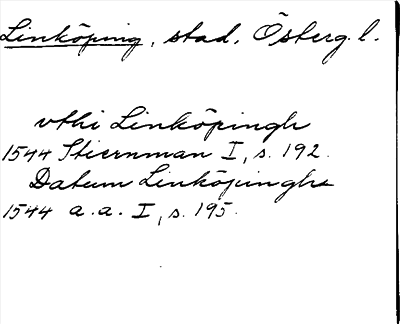 Linköping, stad. Österg. l.
vthi Linköpingh
1544 Stiernman I, s. 192.
Datum Linköpinghs
1544 a.a. I, s. 195.